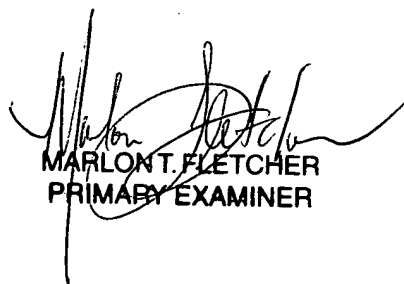 Marlon Fletcher
MARLON T. FLETCHER
PRIMARY EXAMINER